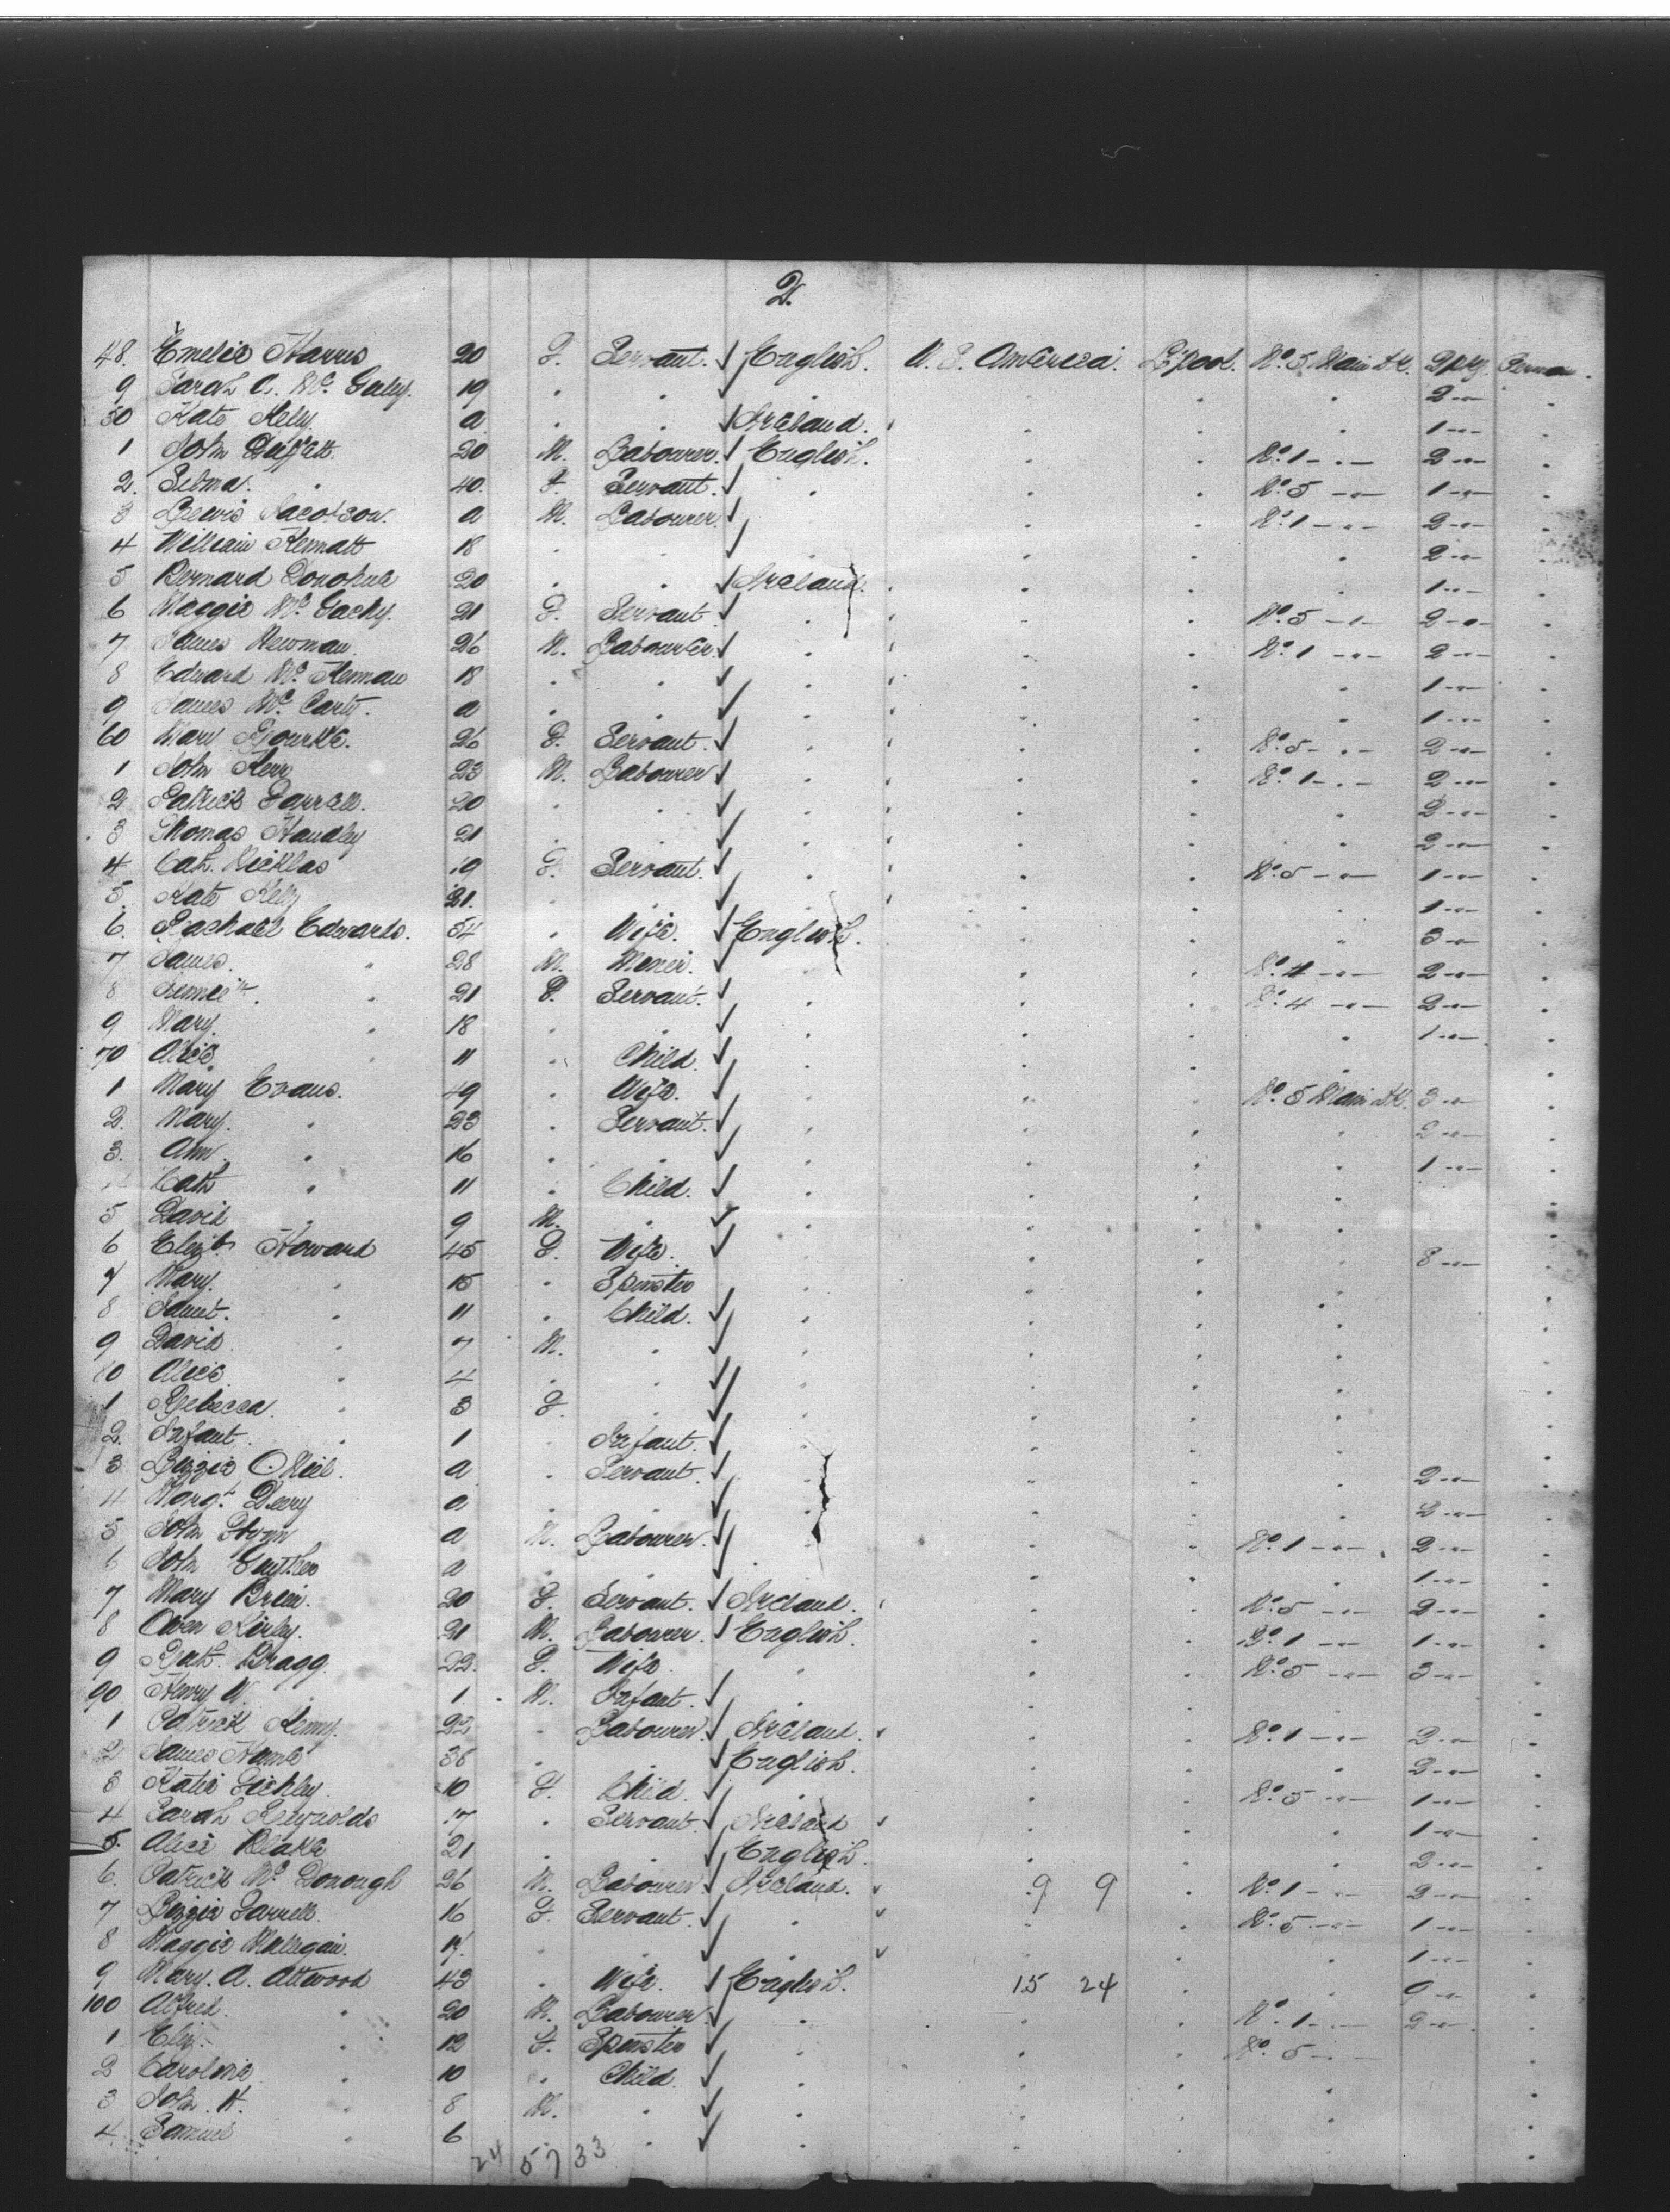 2.
48. Emelie Harris 20 F. Servant. English. U. S. America. L'pool. No. 5 Main Dk. 2 pkg.
9 Sarah A. Mc 19 . . . . . . 2 -"-
50 Kate Kelly a . . Ireland. . . . 1 -"-
1 John 20 M. Labourer. English. . . No. 1 -"- 2 -"-
2. Selma. . 40. F. Servant. . . . No. 5 -"- 1 -"-
3 Lewis Jacobson. a M. Labourer. . . No. 1 -"- 2 -"-
4 William 18 . . . . . 2 -"-
5 Bernard Donohue 20 . . Ireland. . . . 1 -"-
6 Maggie Mc 21 F. Servant . . . No. 5 -"- 2 -"-
7 James Newman. 26 M. Labourer . . . No. 1 -"- 2 -"-
8 Edward Mc 18 . . . . . . 1 -"-
9 James Mc Carty. a . . . . . 1 -"-
60 Mary Rourke. 26 F. Servant. . . . No. 5 -"- 2 -"-
1 John Kerr 23 M. Labourer . . . No. 1 -"- 2 -"-
2 Patrick Farrell. 20 . . . . . . 2 -"-
3 Thomas Handley 21 . . . . . . 2 -"-
4 Cath. Nicklas 19 F. Servant. . . . No. 5 -"- 1 -"-
5. Kate Kelly 21. . . . . . . 1 -"-
6. Rachael Edwards. 54 . Wife. English. . . . 3 -"-
7 James. . 28 M. Miner. . . . No. 4 -"- 2 -"-
8 . 21 F. Servant. . . . No. 4 -"- 2 -"-
9 Mary. . 18 . . . . . . 1 -"-
70 Alice . 11 . Child . . . .
1 Mary Evans. 49 . Wife. . . . No. 5 Main Dk. 3 -"-
2. Mary. . 23 . Servant. . . . . 2 -"-
3. Ann . 16 . . . . . . 1 -"-
Cath . 11 . Child. . . . .
5 David . 9 M. . . . . .
6 Elizth Howard 45 F. Wife. . . . . 8 -"-
7 Mary. . 15 . Spinster . . . .
8 . 11 . Child. . . . .
9 David . 7 M. . . . . .
80 Alice . 4 . . . . . .
1 Rebecca. . 3 F. . . . . .
2. Infant . 1 . Infant. . . . .
3 Lizzie ONiel. a . Servant. . . . . 2 -"-
4 Margt. Deery a . . . . . . 2 -"-
5 John a M. Labourer. . . . No. 1 -"- 2 -"-
6 John a . . . . . . 1 -"-
7 Mary Brien. 20 F. Servant. Ireland. . . No. 5 -"- 2 -"-
8 Owen Kirley. 21 M. Labourer. English. . . No. 1 -"- 1 -"-
9 Bragg. 22. F. Wife . . . No. 5 -"- 3 -"-
90 Henry W. . 1. M. Infant. . . . .
1 Patrick Kenny. 22 . Labourer. Ireland. . . No. 1 -"- 2 -"-
2 James 36 . . English. . . . 2 -"-
3 Katie 10 F. Child. . . . No. 5 -"- 1 -"-
4 Sarah Reynolds 17 . Servant. Ireland . . . 1 -"-
5. Alice Blake 21 . . English. . . . 2 -"-
6. Patrick Mc Donough 26 M. Labourer. Ireland. 9 9 . No. 1 -"- 2 -"-
7 Lizzie Farrell. 16 F. Servant. . . . No. 5 -"- 1 -"-
8 Maggie . . . . . . 1 -"-
9 Mary. A. Attwood 43 . Wife. English. 15 24 . . 9 -"-
100 Alfred. . 20 M. Labourer. . . . No. 1 -"- 2 -"-
1 Eliz. . 12 F. Spinster . . . No. 5 -"-
2 Caroline . 10 . Child. . . . .
3 John. H. . 8 M. . . . . .
4 Samuel . 6 . . . . . .
24 57 33